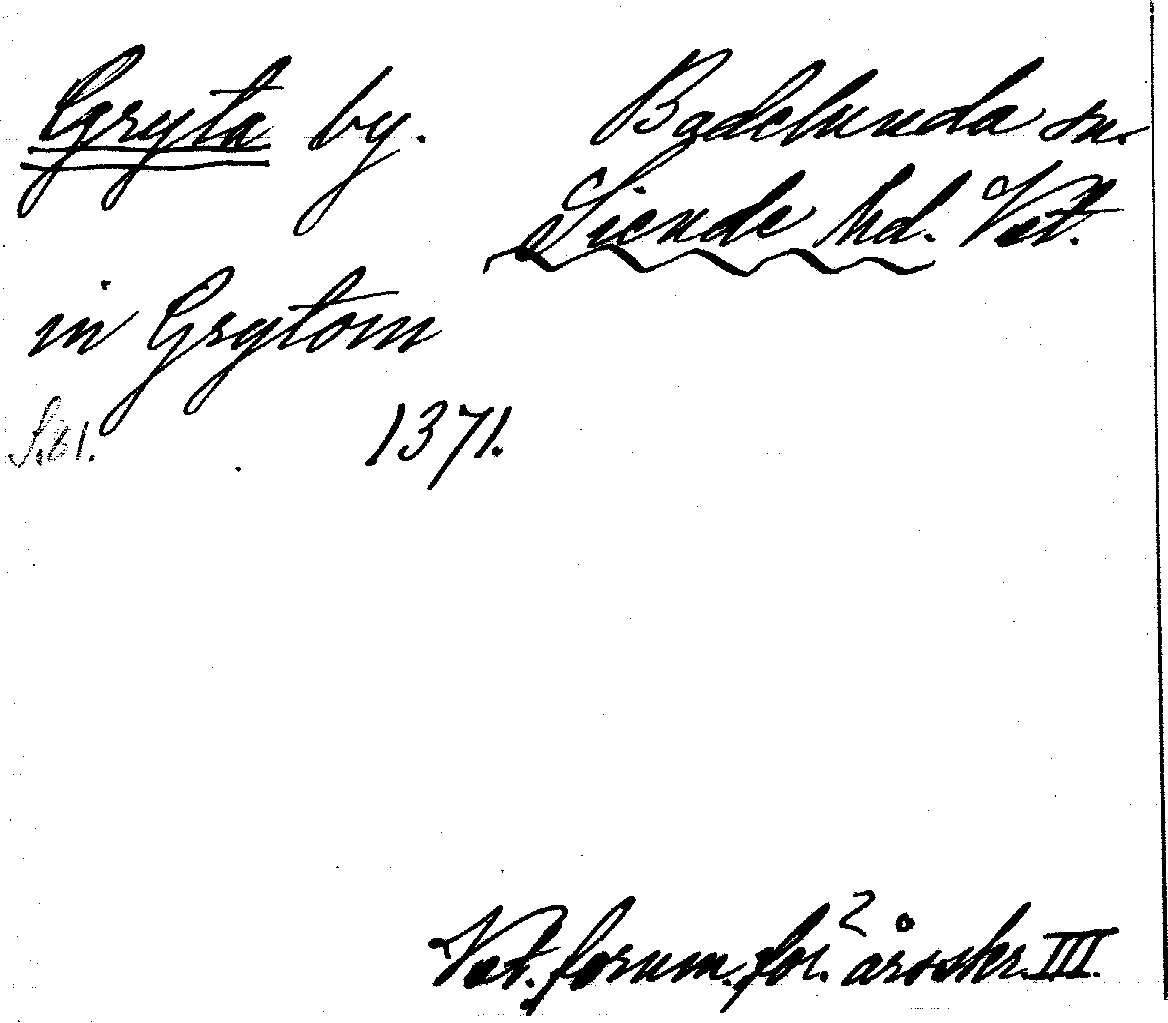 Gryta by. Badelunda sn.
Siende hd. Vstm.
in Grytom
S. 61. 1371.
Vst. fornm. för:s årsskr. III.